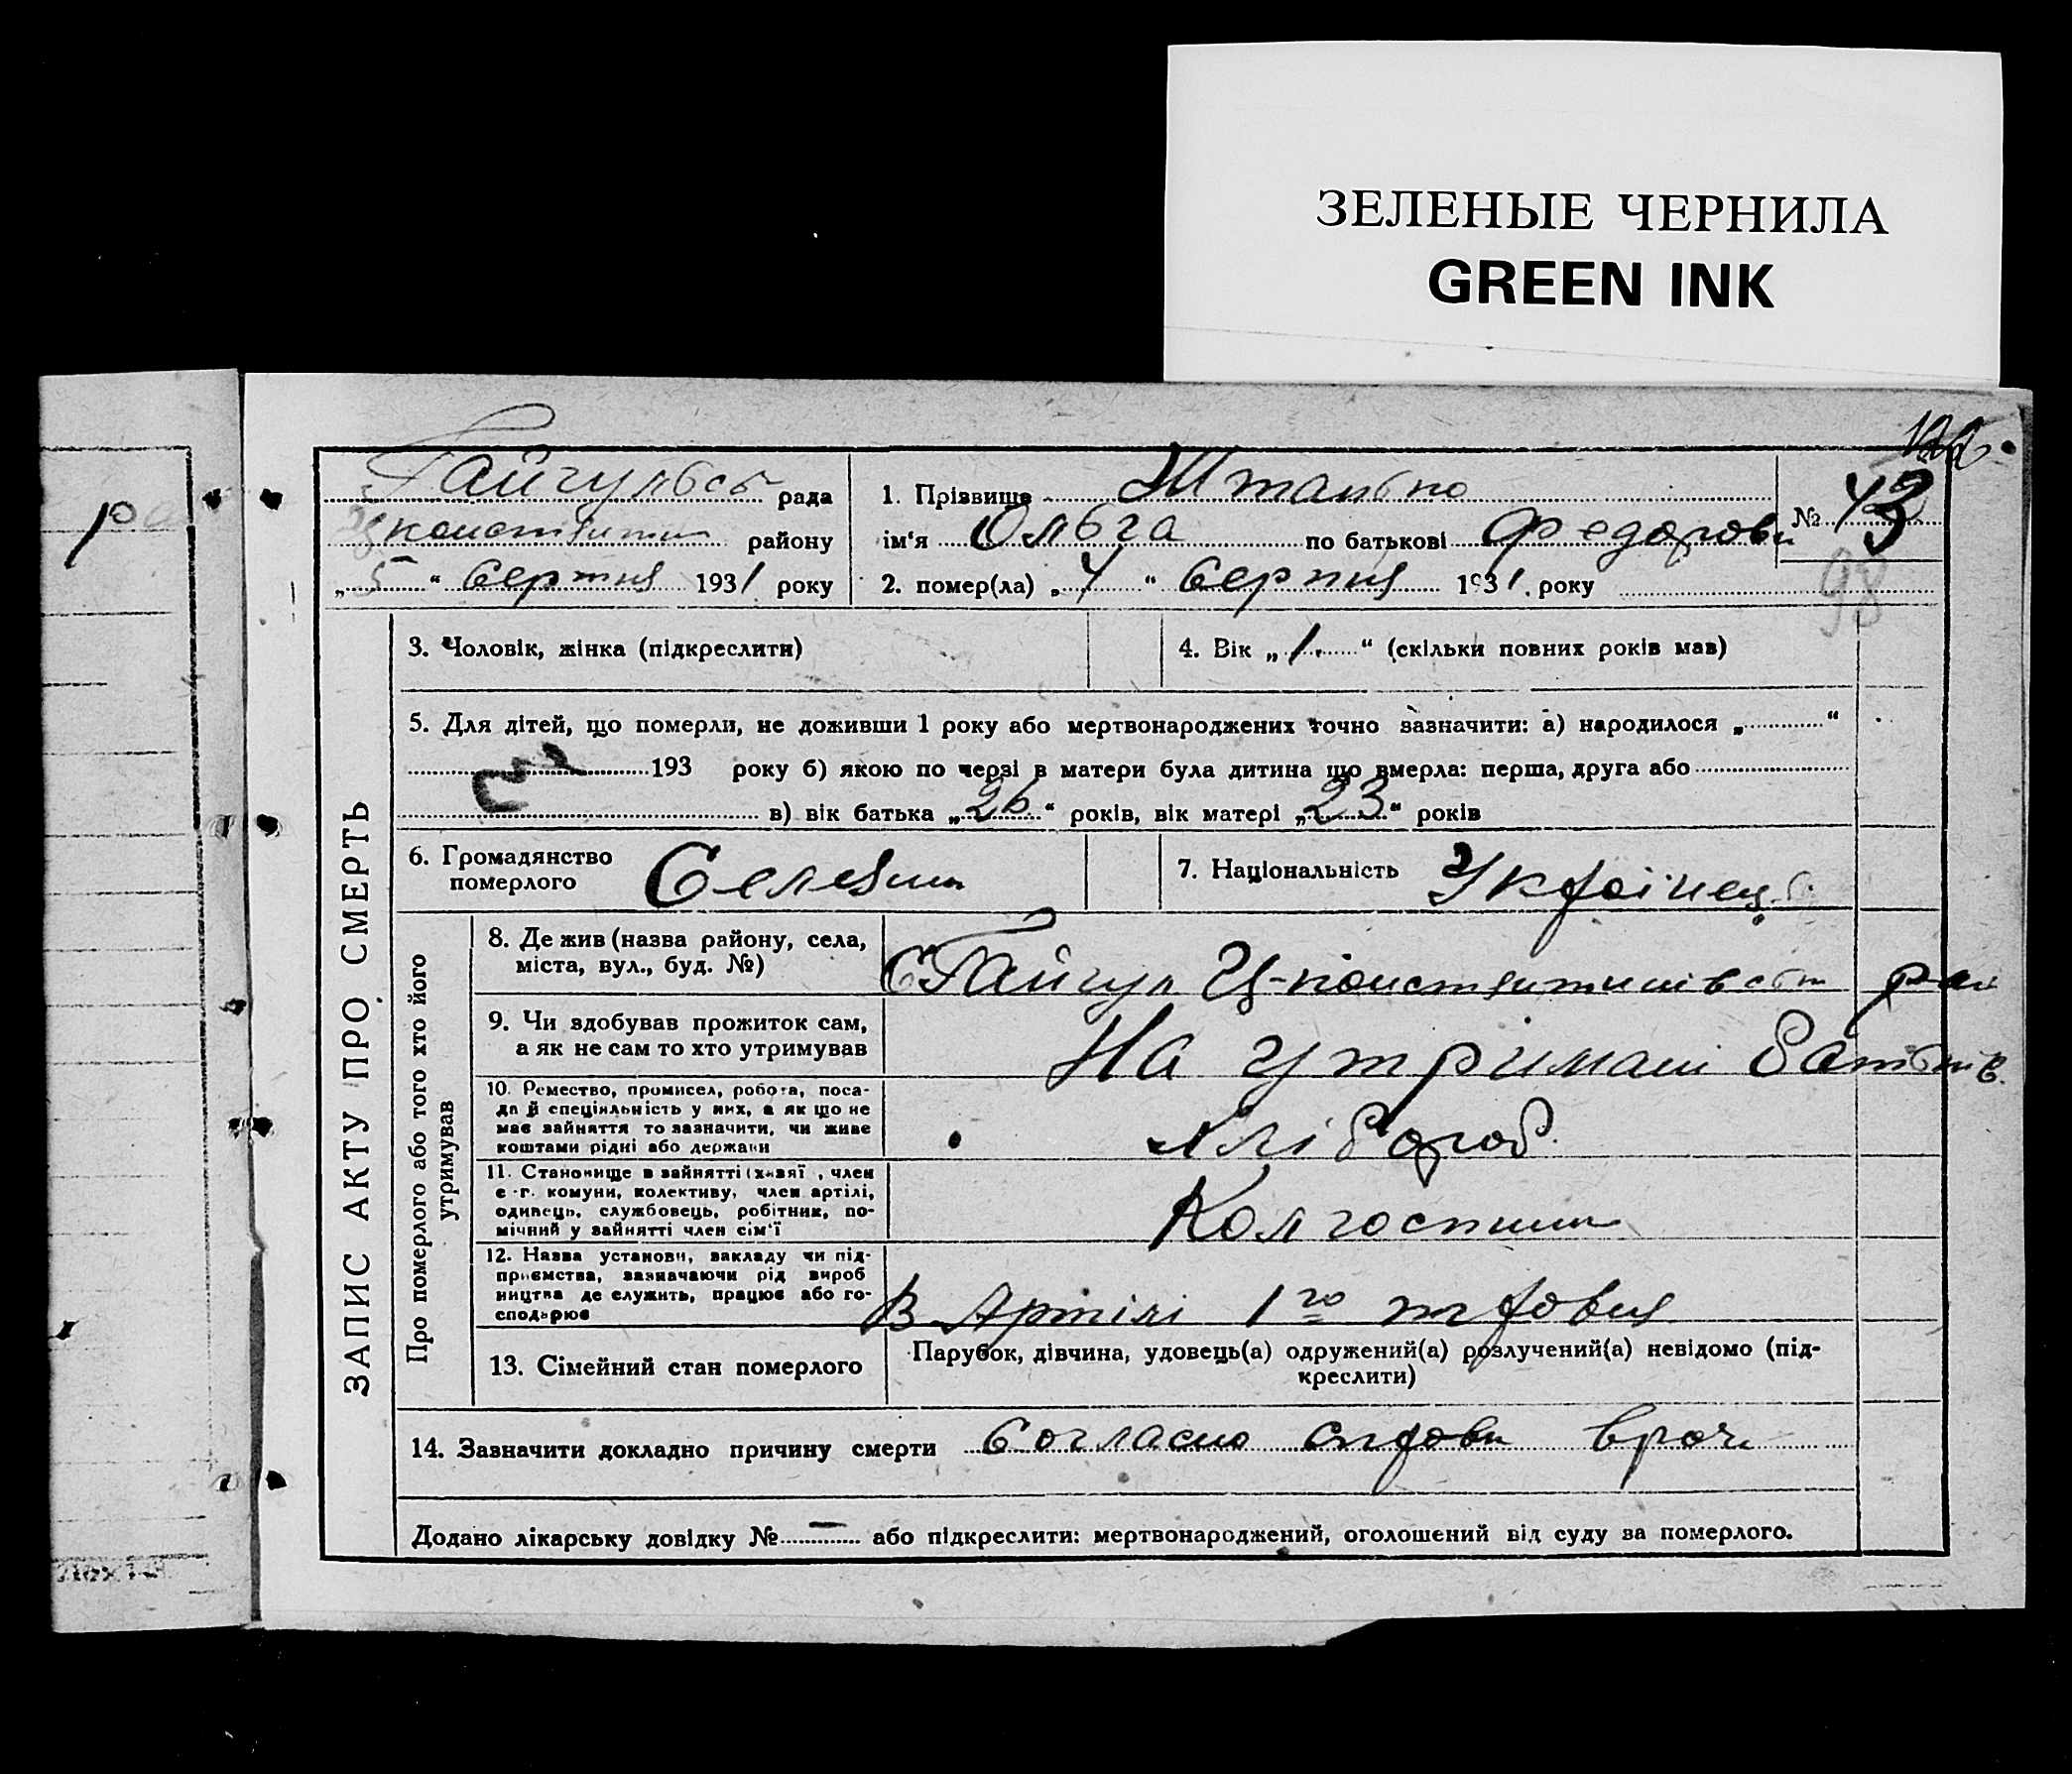 ЗЕЛЕНЫЕ ЧЕРНИЛА
GREEN INK
Гайгульсь рада
районy
„5“ Серпня 1931 року
1. Прізвище
ім'я Ольга по батькові Федоров
№ 43
98
2. помер(ла) „4“ Серпня 1931 року
ЗАПИС АКТУ ПРО СМЕРТЬ
3. Чоловік, жінка (підкреслити)
4. Вік „1.“ (скільки повних років мав)
5. Для дітей, що померли, не доживши 1 року або мертвонароджених точно зазначити: а) народилося „ “
193 року б) якою по черзі в матери була дитина що вмерла: перша, друга або
в) вік батька „26“ років, вік матері „23“ років
6. Громадянство
померлого
7. Національність Українец
Про померлого або того хто його
утримував
8. Де жив (назва району, села,
міста, вул., буд. №)
С Гайгул Ц-константинівськ рай
9. Чи здобував прожиток сам,
а як не сам то хто утримував
На утримані Батьків.
10. Ремество, промисел, робота, поса-
да й спеціяльність у них, а як що не
має зайняття то зазначити, чи живе
коштами рідні або держави
Хлібороб
11. Становище в зайнятті (хазяї, член
с-г. комуни, колективу, член артілі,
одинець, службовець, робітник, по-
мічний у зайнятті член сім'ї
Колгоспник
12. Назва установи, закладу чи під-
приємства, зазначаючи рід вироб
ництва де служить, працює або го-
сподарює
В Артілі 1го травня
13. Сімейний стан померлого
Парубок, дівчина, удовець(а) одружений(а) розлучений(а) невідомо (під-
креслити)
14. Зазначити докладно причину смерти Согласно справки врача
Додано лікарську довідку № — або підкреслити: мертвонароджений, оголошений від суду за померлого.